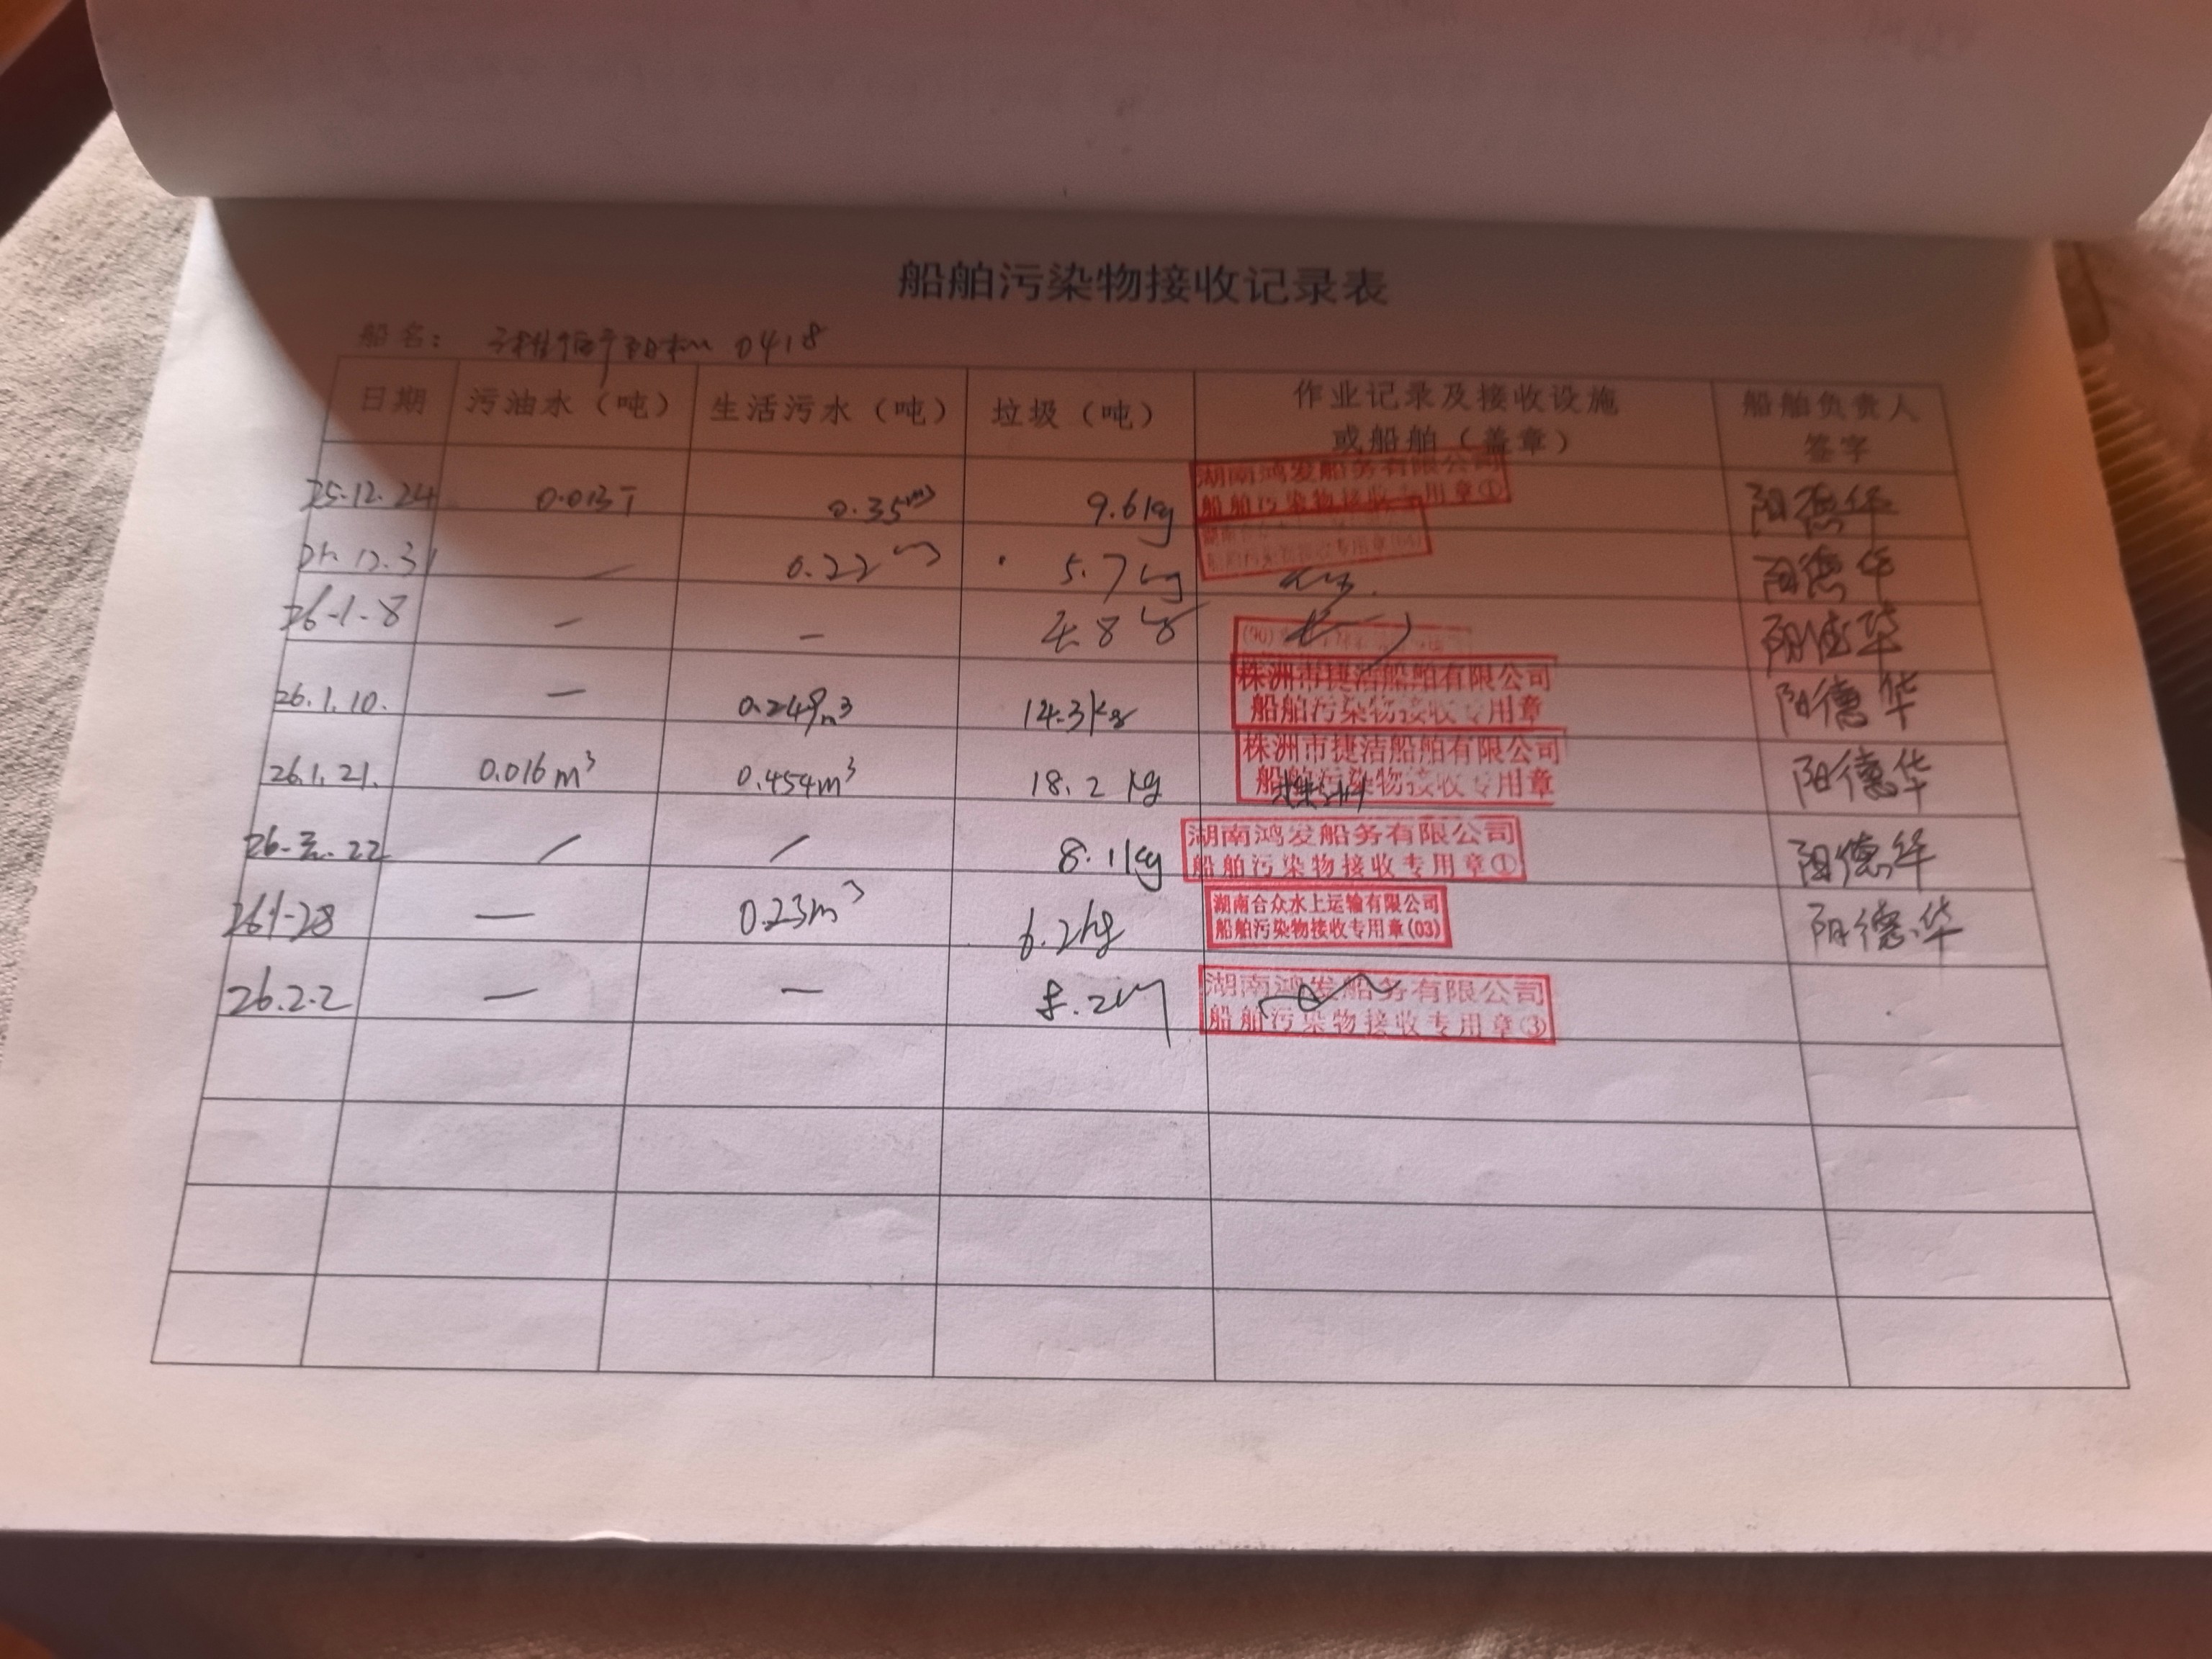 船舶污染物接收记录表
船名： 0418
日期 污油水（吨） 生活污水（吨） 垃圾（吨） 作业记录及接收设施或船舶（盖章） 船舶负责人签字
25.12.24 0.013T 0.35m3 9.6kg 湖南鸿发船务有限公司 船舶污染物接收专用章① 阳德华
12.31 — 0.22m3 5.7kg 船舶污染物接收专用章 阳德华
26-1-8 — — 8 阳德华
26.1.10. — 0.249m3 14.3kg 株洲市捷洁船舶有限公司 船舶污染物接收专用章 阳德华
26.1.21. 0.016m3 0.454m3 18.2kg 株洲市捷洁船舶有限公司 船舶污染物接收专用章 阳德华
26. .22 / / 8.1kg 湖南鸿发船务有限公司 船舶污染物接收专用章① 阳德华
26.1-28 — 0.23m3 6.2kg 湖南合众水上运输有限公司 船舶污染物接收专用章(03) 阳德华
26.2.2 — — 湖南鸿发船务有限公司 船舶污染物接收专用章③